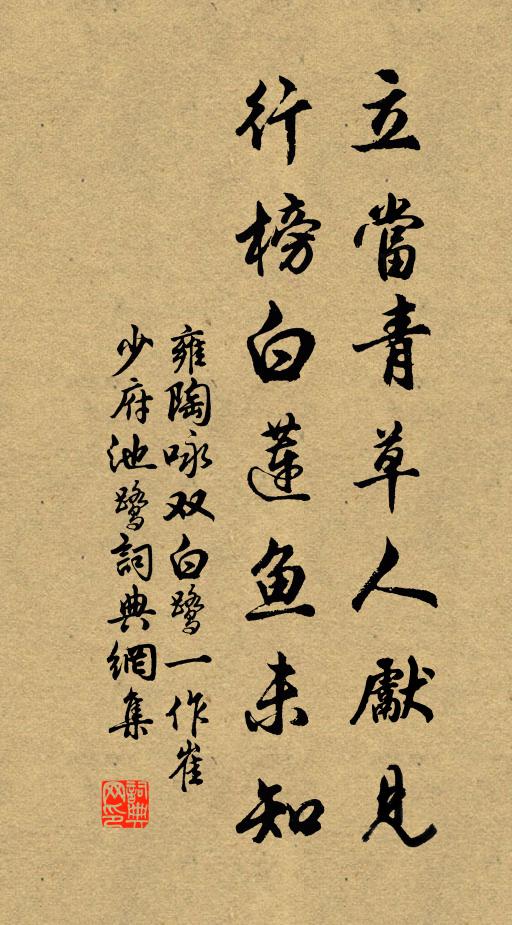 立當青草人獻見
行榜白蓮鱼未知
雍陶咏双白鹭一作崔
少府池鹭詞典網集
詞典网印